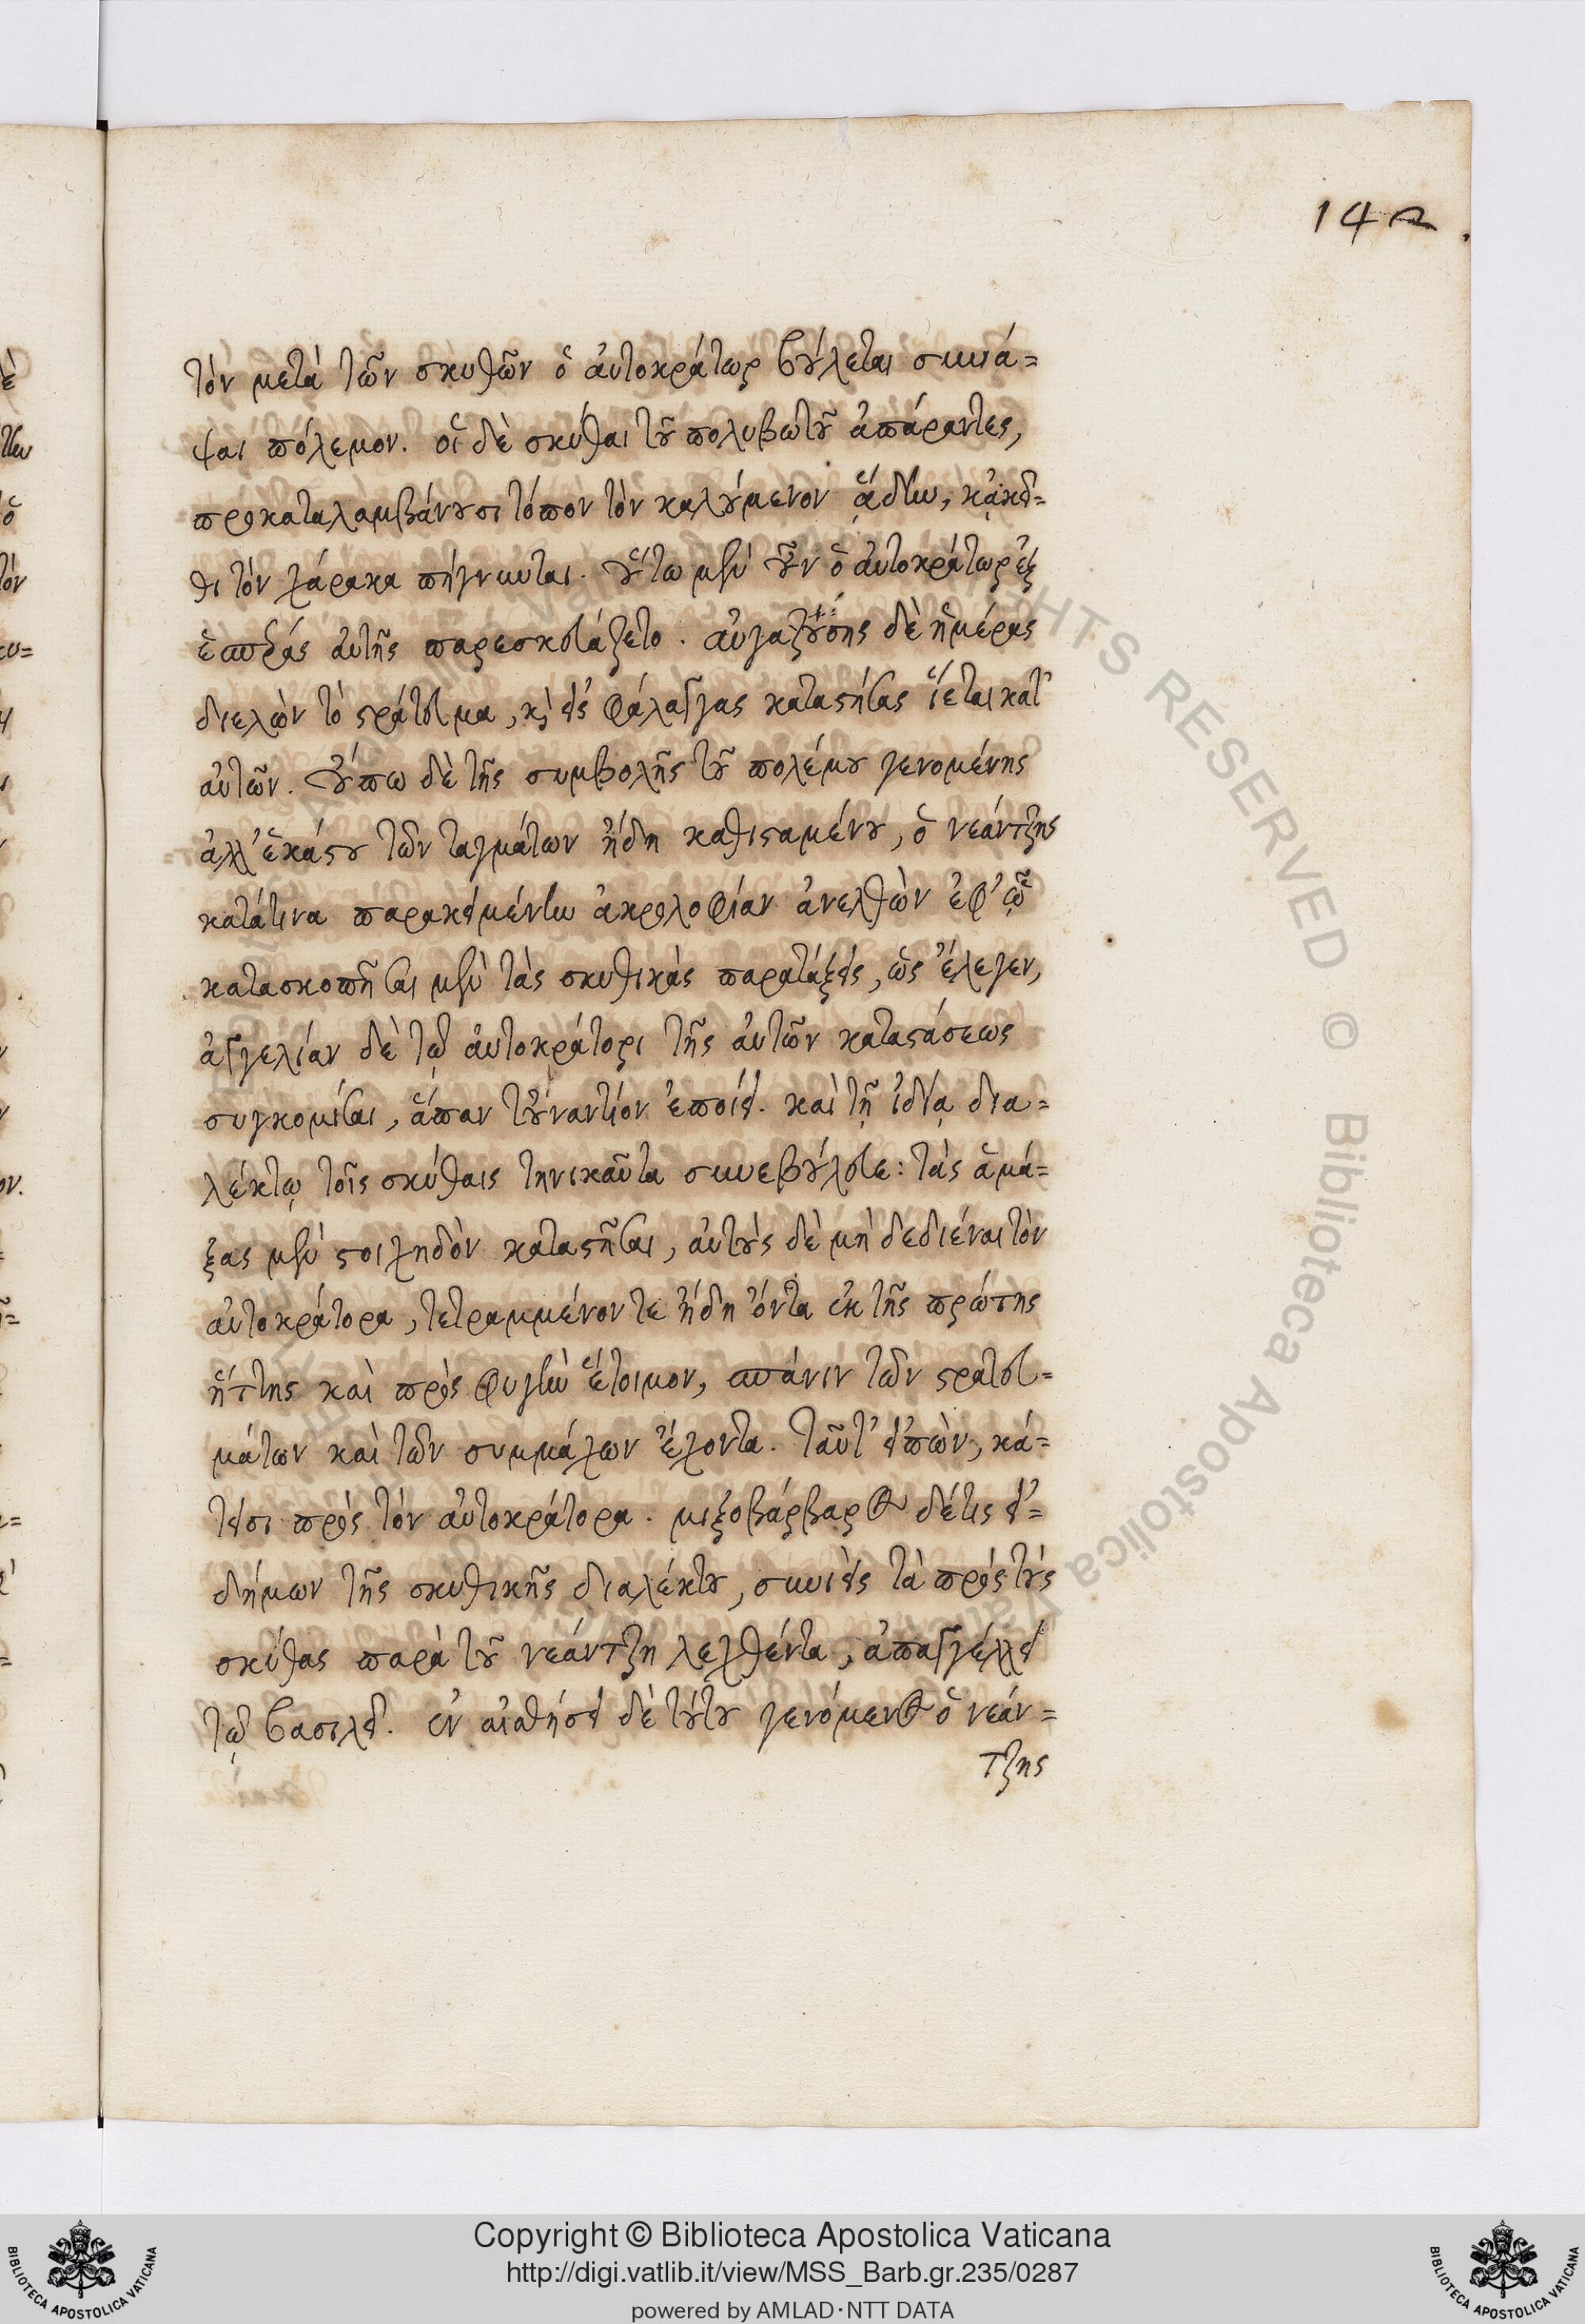 142.
τὸν μετὰ τῶν σκυθῶν ὁ αὐτοκράτωρ βούλεται συνά=
ψαι πόλεμον. οἱ δὲ σκύθαι τοῦ πολυβωτοῦ ἀπάραντες,
προκαταλαμβάνουσι τόπον τὸν καλούμενον ἅδην, κᾀκεῖ=
θι τὸν χάρακα πήγνυνται. οὕτω μὲν οὖν ὁ αὐτοκράτωρ ἐξ
ἑσπέρας αὐτῆς παρεσκευάζετο. αὐγαζούσης δὲ ἡμέρας
διελὼν τὸ στράτευμα, κ̀ εἰς φάλαγγας καταστήσας ἵεται κατ'
αὐτῶν. οὔπω δὲ τῆς συμβολῆς τοῦ πολέμου γενομένης
ἀλλ' ἑκάστου τῶν ταγμάτων ἤδη καθισταμένου, ὁ νεάντζης
κατά τινα παρακειμένην ἀκρολοφίαν ἀνελθὼν ἐφ' ᾧ
κατασκοπῆσαι μὲν τὰς σκυθικὰς παρατάξεις, ὡς ἔλεγεν,
ἀγγελίαν δὲ τῷ αὐτοκράτορι τῆς αὐτῶν καταστάσεως
συγκομίσαι, ἅπαν τοὐναντίον ἐποίει. καὶ τῇ ἰδίᾳ δια=
λέκτῳ τοῖς σκύθαις τηνικαῦτα συνεβούλευε: τὰς ἁμά=
ξας μὲν στοιχηδὸν καταστῆσαι, αὐτοὺς δὲ μὴ δεδιέναι τὸν
αὐτοκράτορα, τετραμμένον τε ἤδη ὄντα ἐκ τῆς πρώτης
ἥττης καὶ πρὸς φυγὴν ἕτοιμον, σπάνιν τῶν στρατευ=
μάτων καὶ τῶν συμμάχων ἔχοντα. ταῦτ' εἰπὼν, κά=
τεισι πρὸς τὸν αὐτοκράτορα. μιξοβάρβαρος δέ τις εἰ=
δήμων τῆς σκυθικῆς διαλέκτου, συνιεὶς τὰ πρὸς τοὺς
σκύθας παρὰ τοῦ νεάντζη λεχθέντα, ἀπαγγέλλει
τῷ βασιλεῖ. ἐν αἰσθήσει δὲ τούτου γενόμενος ὁ νεάν=
τζης
Copyright © Biblioteca Apostolica Vaticana
http://digi.vatlib.it/view/MSS_Barb.gr.235/0287
powered by AMLAD·NTT DATA